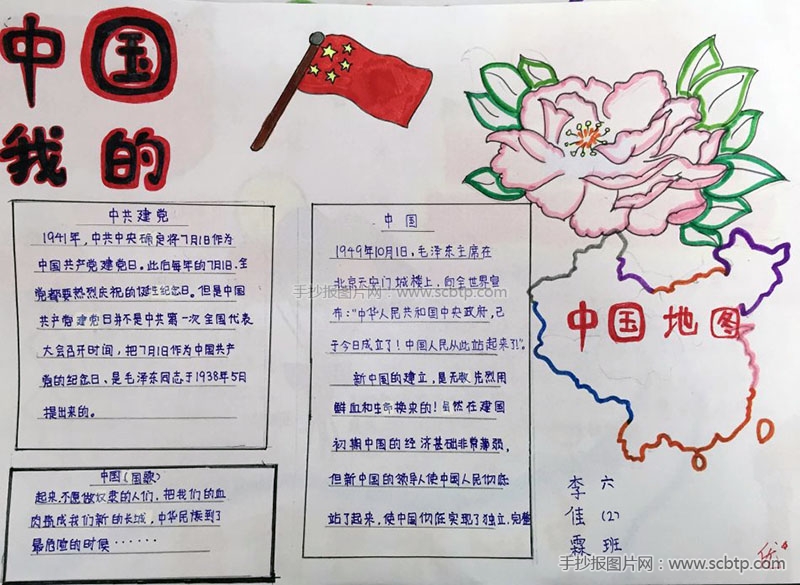 中国
我的
中共建党
1941年，中共中央确定将7月1日作为
中国共产党建党日。此后每年的7月1日，全
党都要热烈庆祝的诞生纪念日。但是中国
共产党建党日并不是中共第一次全国代表
大会召开时间，把7月1日作为中国共产
党的纪念日、是毛泽东同志于1938年5月
提出来的。
中国(国歌)
起来，不愿做奴隶的人们，把我们的血
肉筑成我们新的长城，中华民族到了
最危险的时候······
中国
1949年10月1日，毛泽东主席在
北京天安门城楼上，向全世界宣
布："中华人民共和国中央政府，已
于今日成立了！中国人民从此站起来了！"。
新中国的建立，是无数先烈用
鲜血和生命换来的！虽然在建国
初期中国的经济基础非常薄弱，
但新中国的领导人使中国人民彻底
站了起来，使中国彻底实现了独立，完整
中国地图
李佳霖
六(2)班
手抄报图片网：www.scbtp.com
手抄报图片网：www.scbtp.com